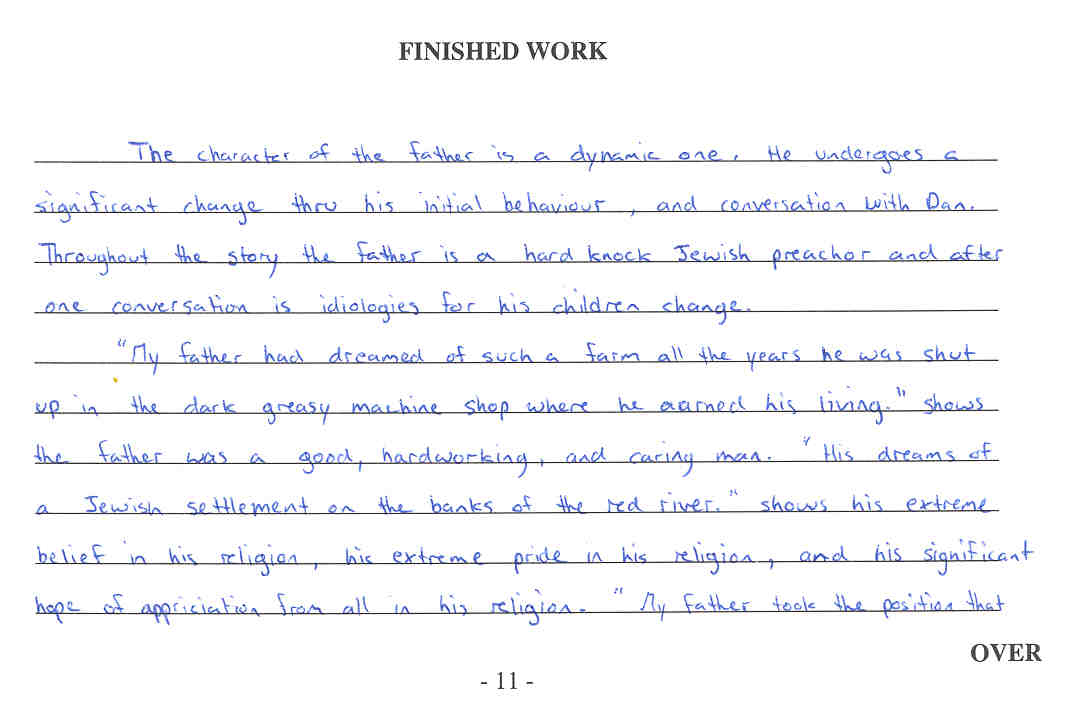 FINISHED WORK
The character of the father is a dynamic one. He undergoes a
significant change thru his initial behaviour, and conversation with Dan.
Throughout the story the father is a hard knock Jewish preachor and after
one conversation is idiologies for his children change.
"My father had dreamed of such a farm all the years he was shut
up in the dark greasy machine shop where he earned his living." shows
the father was a good, hardworking, and caring man. "His dreams of
a Jewish settlement on the banks of the red river." shows his extreme
belief in his religion, his extreme pride in his religion, and his significant
hope of appriciation from all in his religion. "My father took the position that
OVER
- 11 -